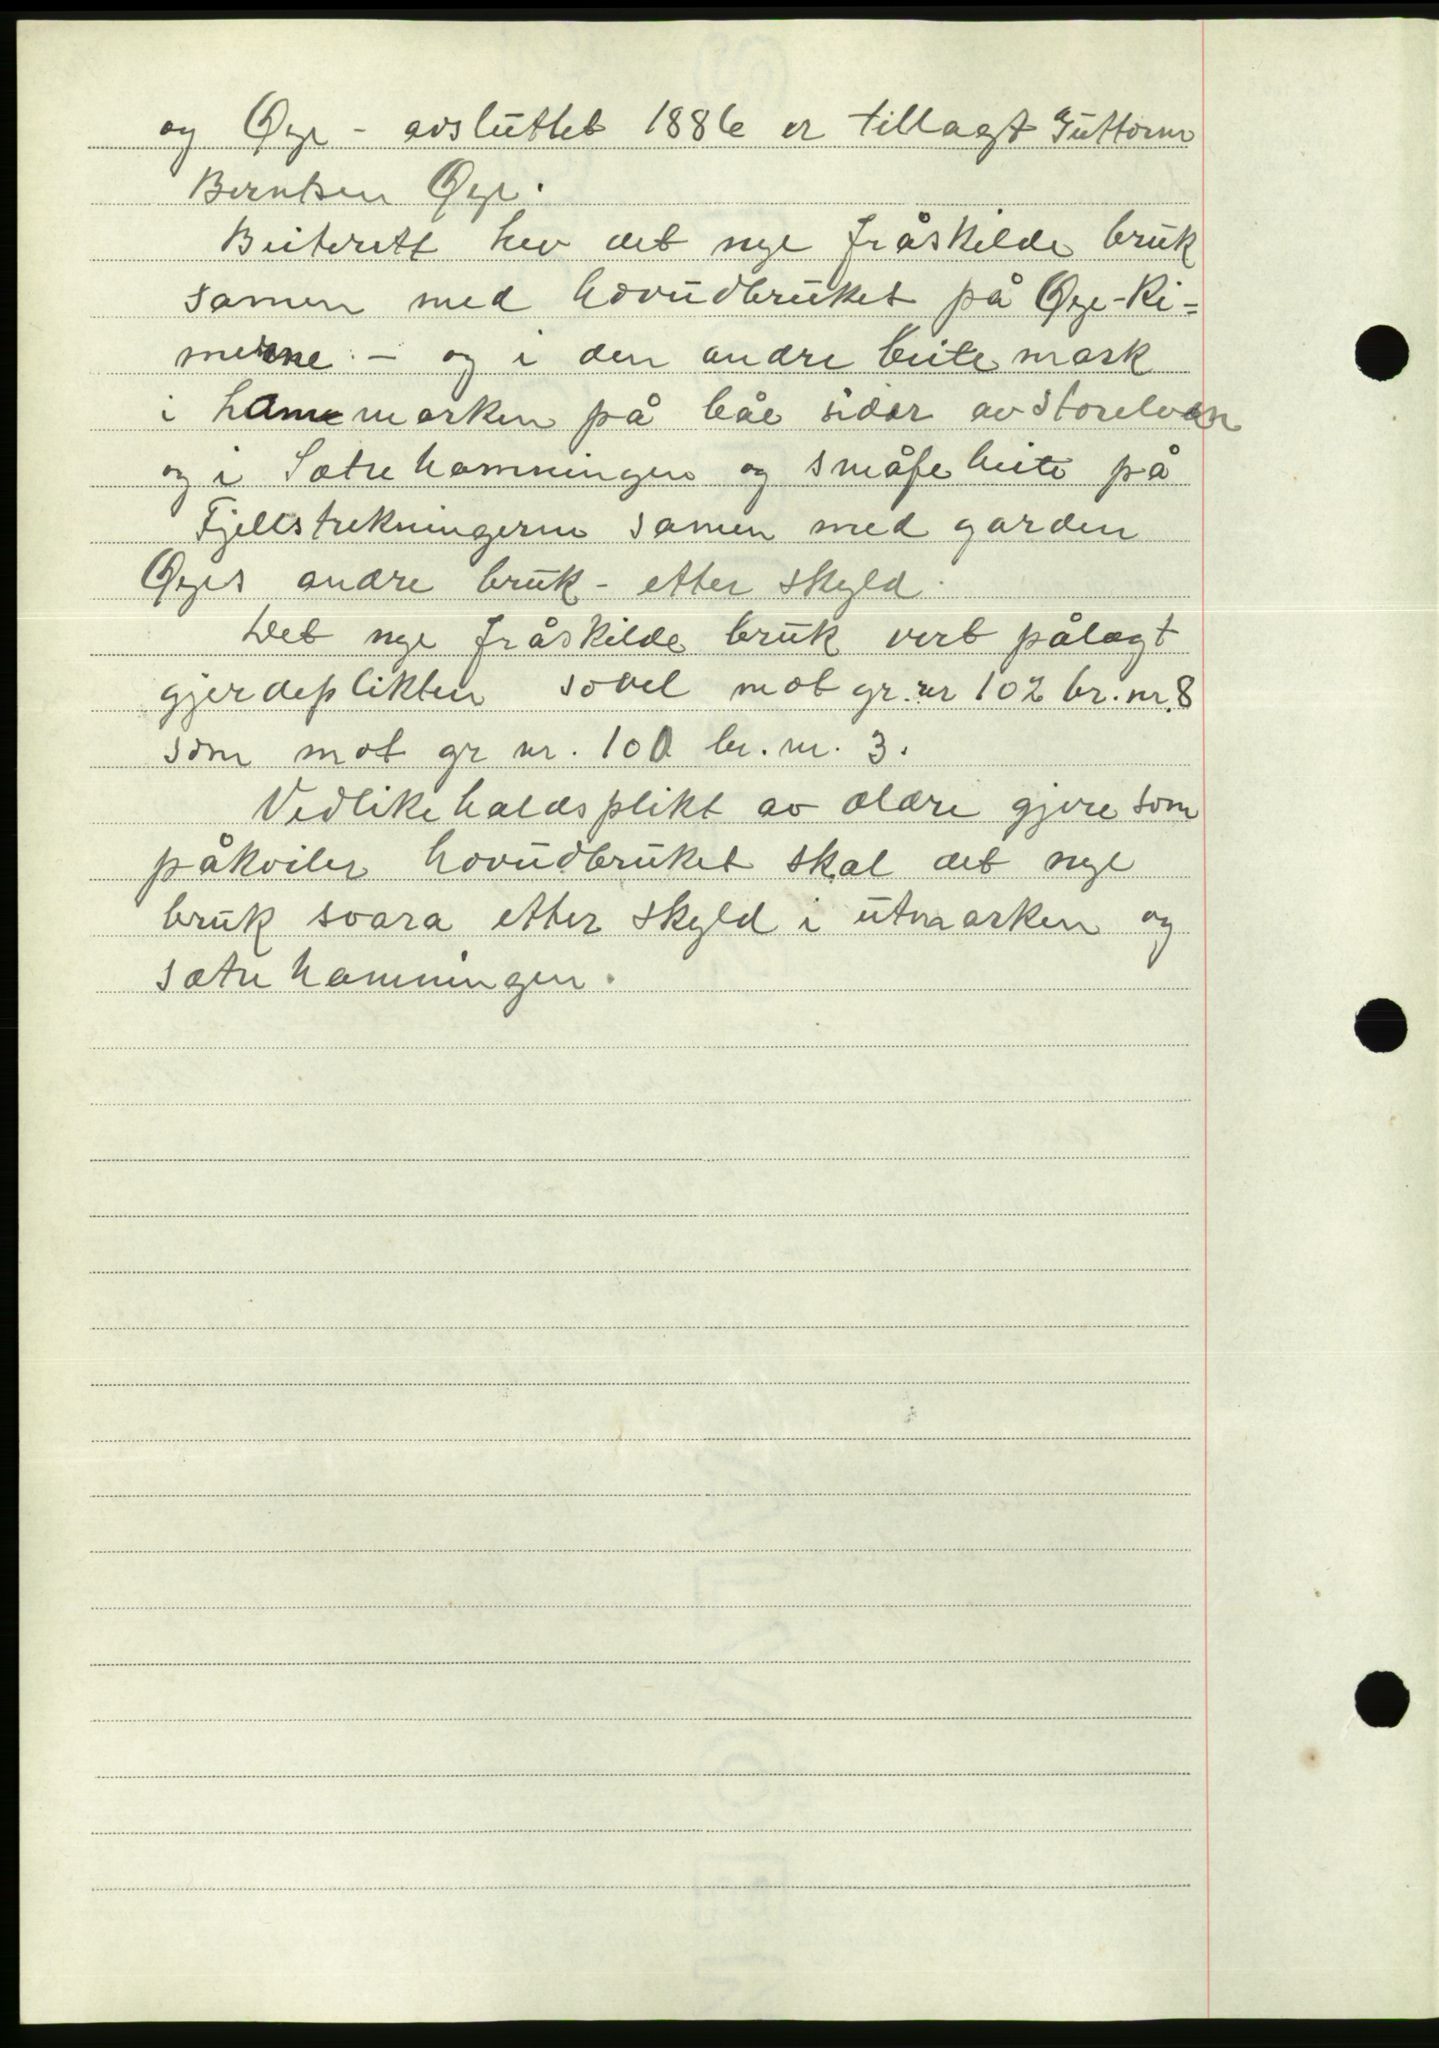 og Øye - avsluttet 1886 er tillagt Guttorm
Berntsen Øye.
Beiterett hev det nye fråskilde bruk
samen med hovudbruket på Øye-Ri-
meine - og i den andre beitemark
i hamemarken på båe sider av storelven
og i Sætrehamningen og småfebeite på
Fjellstrekningerne samen med garden
Øyes andre bruk - etter skyld.
Det nye fråskilde bruk vert pålagt
gjerdeplikten sovel mot gr. nr 102 br. nr. 8
som mot gr nr. 100 br. nr. 3.
Vedlikehaldsplikt av eldre gjere som
påkviler hovudbruket skal det nye
bruk svara etter skyld i utmarken og
sætrehamningen.